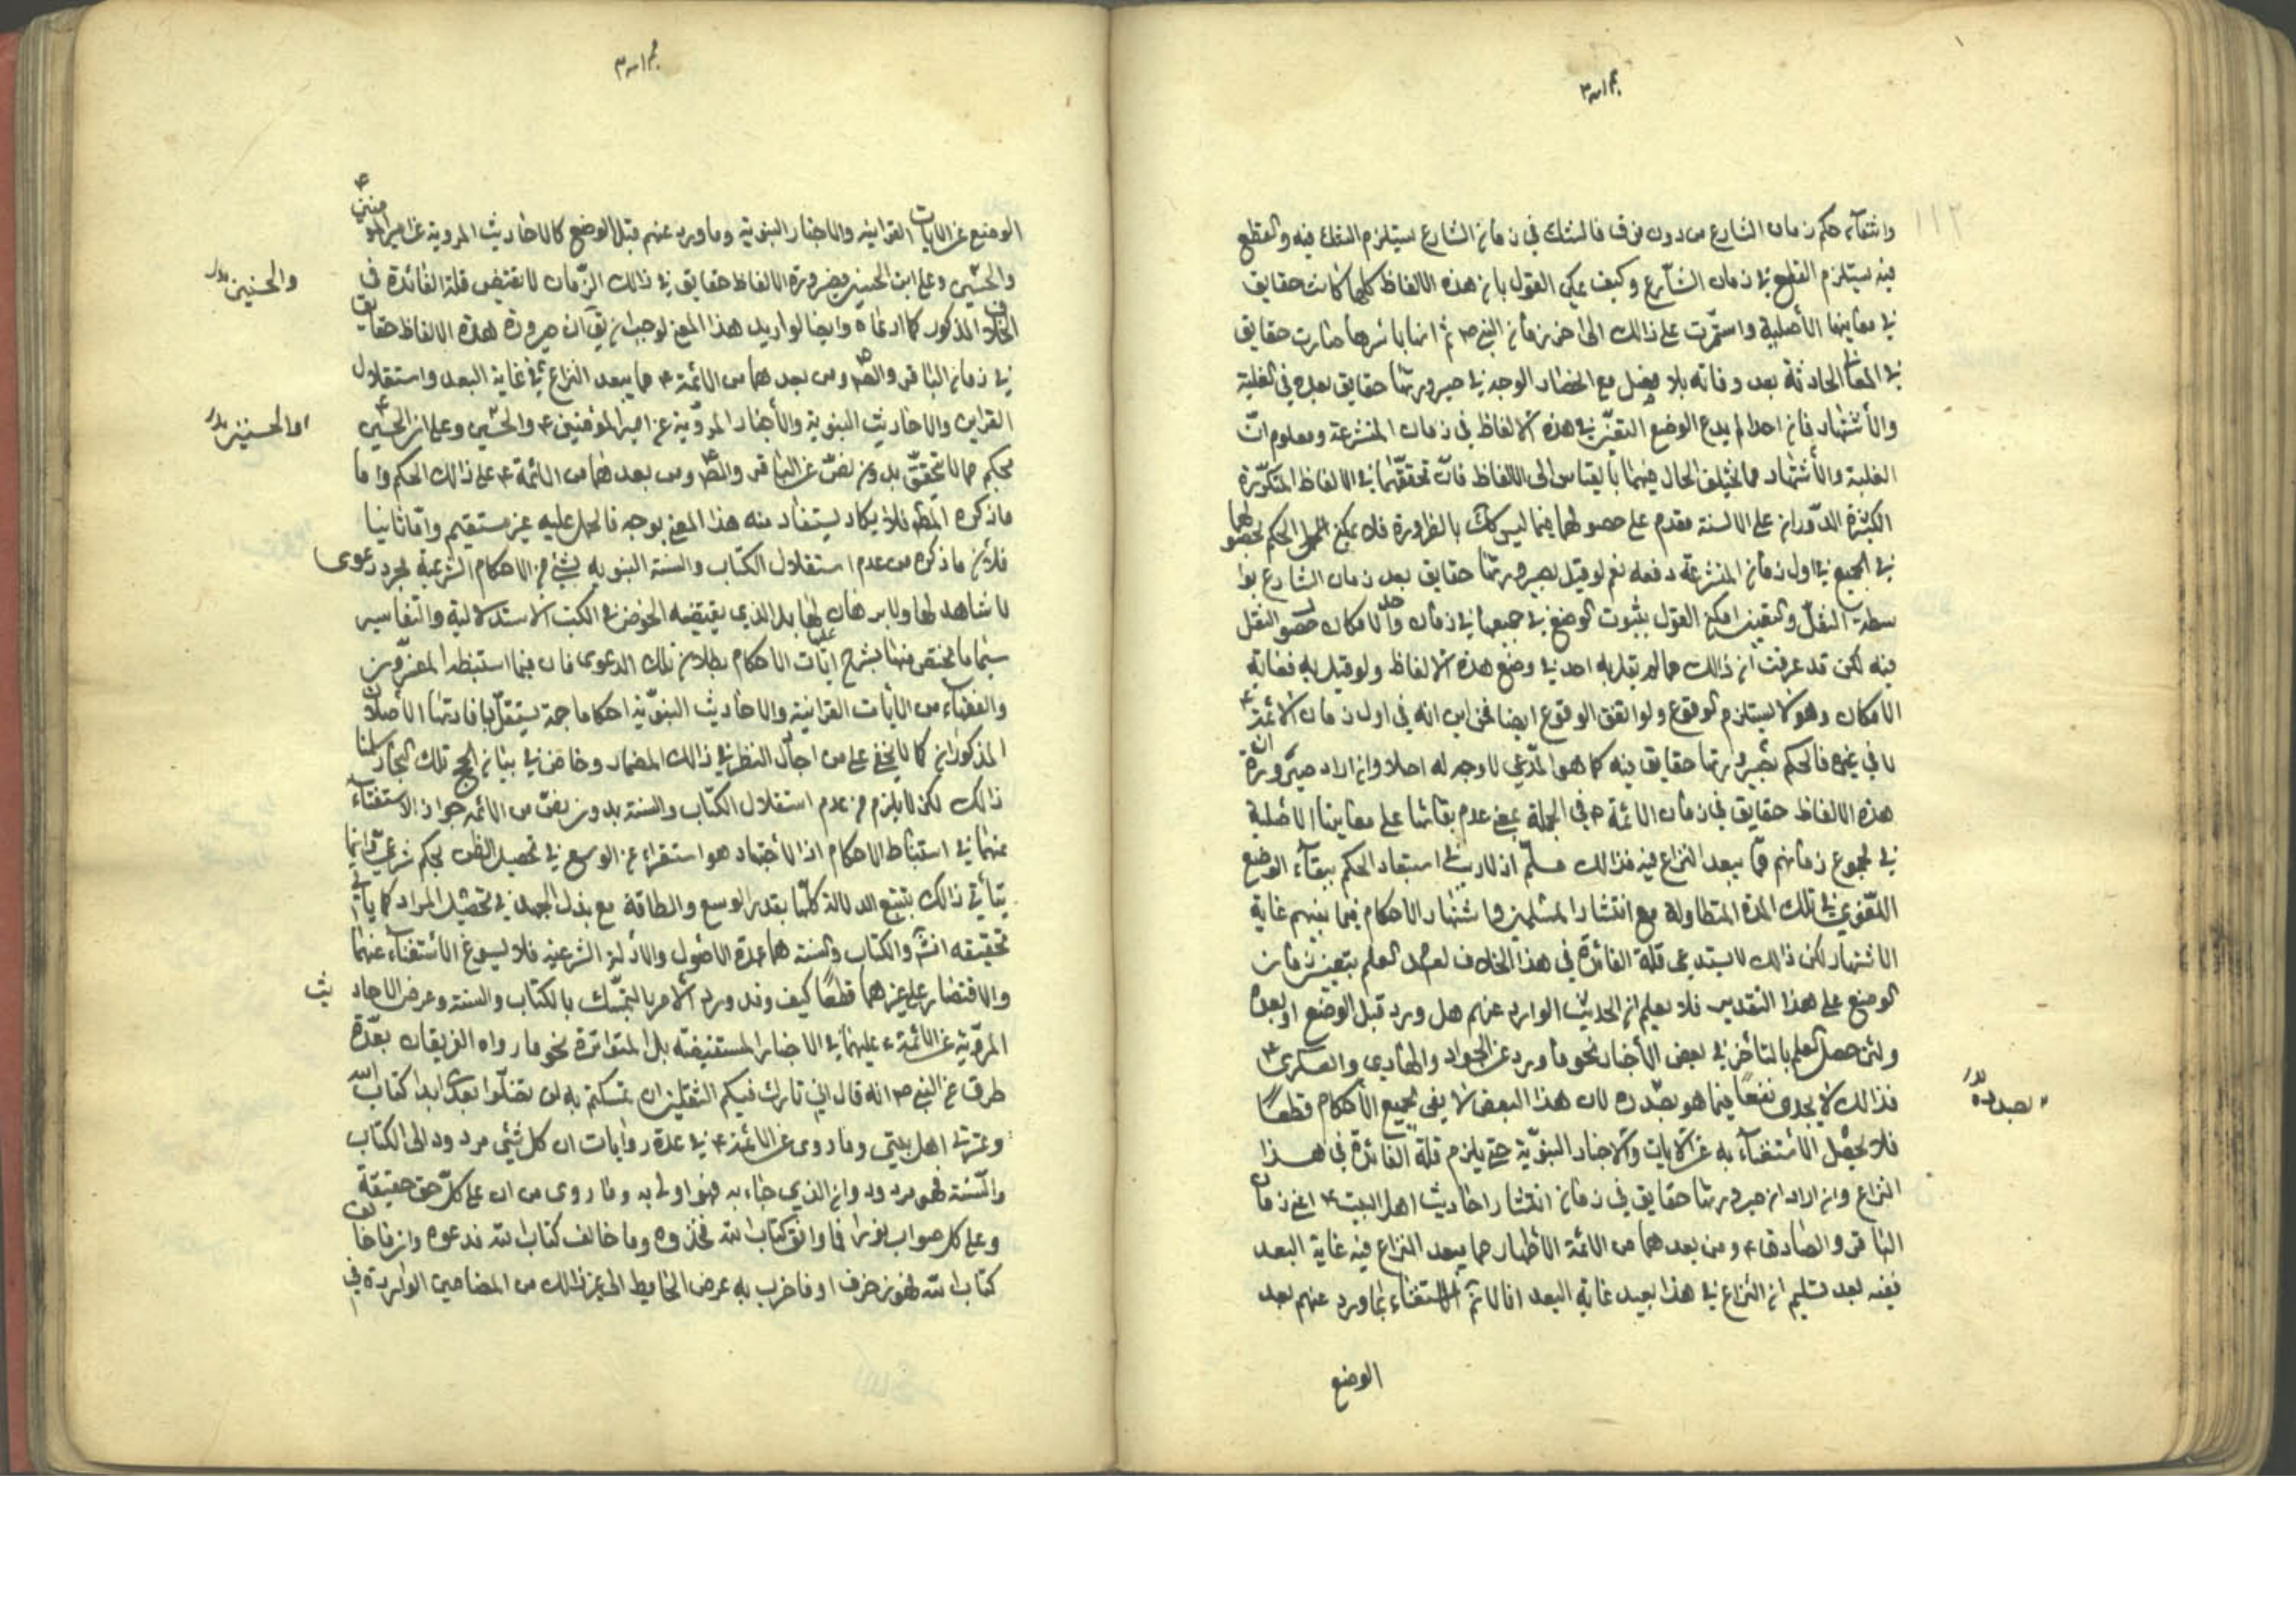 وانتفائه حكم زمان الشارع من دون فرق فالشك في زمان الشارع يستلزم الشك فيه والقطع
فيه يستلزم القطع في زمان الشارع وكيف يمكن القول بان هذه الالفاظ كلها كانت حقايق
في معانيها الأصلية واستمرت على ذالك الى اخر زمان النبي ص ثم انها باسرها صارت حقايق
في المعاني الحادثة بعد وفاته بلا فصل مع انحصار الوجه في صيرورتها حقايق بعده في الغلبة
والأشتهار فان احدا لم يدع الوضع التعيني في هذه الالفاظ في زمان المتشرعة ومعلوم انّ
الغلبة والأشتهار مما يختلف الحال فيهما بالقياس الى الالفاظ فان تحققهما في الالفاظ المتكررة
الكثيرة الدوران على الالسنة مقدم على حصولهما فيما ليس كك بالضرورة فلا يمكن الحكم بحصولهما
في الجميع في اول زمان المتشرعة دفعه نعم لو قيل بصيرورتها حقايق بعد زمان الشارع بوا
سطة النقل والتعيين امكن القول بثبوت الوضع في جميعها في زمان واحد لامكان حصول النقل
فيه لكن قد عرفت ان ذالك مما لم يقل به احد في وضع هذه الالفاظ ولو قيل به فغايته
الامكان وهو لا يستلزم الوقوع ولو اتفق الوقوع ايضا فمن اين انه في اول زمان الائمة ع
لا في غيره فالحكم بصيرورتها حقايق فيه كما هو المدعي لا وجه له اصلا وان اراد ان صيرورة
هذه الالفاظ حقايق في زمان الائمة ع في الجملة بمعنى عدم بقائها على معانيها الاصلية
في مجموع زمانهم مما يبعد النزاع فيه فذالك مسلم اذ لا ريب في استبعاد الحكم ببقاء الوضع
اللغوي في تلك المدة المتطاولة مع انتشار المسلمين واشتهار الاحكام فيما بينهم غاية
الاشتهار لكن ذالك لا يستدعى قلة الفائدة في هذا الخلاف لعدم العلم بتعيين زمان
الوضع على هذا التقدير فلا يعلم ان الحديث الوارد عنهم هل ورد قبل الوضع او بعده
ولئن حصل العلم بالتأخر في بعض الأخبار نحو ما ورد عن الجواد والهادي والعسكري ع
فذالك لا يجدى نفعا فيما هو بصدده لان هذا البعض لا يفى بجميع الأحكام قطعا
بصدده
فلا يحصل الأستغناء به عن الايات والاخبار النبوّية حتى يلزم قلة الفائدة في هذا
النزاع وان اراد ان صيرورتها حقايق في زمان انتشار احاديث اهل البيت ع اعني زمان
الباقر والصادق ع ومن بعدهما من الائمة الأطهار مما يبعد النزاع فيه غاية البعد
ففيه بعد تسليم ان النزاع في هذا بعيد غاية البعد انا لانم الاستغناء بما ورد عنهم بعد
الوضع
الوضع عن الايات القرانيه والاخبار النبوية وما ورد عنهم قبل الوضع كالاحاديث المروية عن امير المؤمنين ع
والحسنين وعلي ابن الحسين فصيرورة الالفاظ حقايق في ذالك الزّمان لا تقتضي قلة الفائدة في
والحسنين
الخلاف المذكور كما ادعاه وايضا لو اريد هذا المعنى لوجب ان يق ان صيرورة هذه الالفاظ حقايق
في زمان الباقر والصّ ومن بعدهما من الائمة ع مما يبعد النزاع في غاية البعد واستقلال
القران والاحاديث النبوية والأخبار المروّية عن امير المؤمنين ع والحسنين وعلى ابن الحسين ع
والحسنين
بحكم مما لا تحقق بدون نصّ عن الباقر والصّ ومن بعدهما من الائمة ع على ذالك الحكم واما
ما ذكره المظ فلا يكاد يستفاد منه هذا المعنى بوجه فالحمل عليه غير مستقيم واما ثانيا
فلأن ما ذكره من عدم استقلال الكتاب والسنة النبويه بشئ من الاحكام الشرعية مجرد دعوى
لا شاهد لها ولا برهان عليها بل الذي يقتضيه الخوض في الكتب الاستدلالية والتفاسير
سيما ما يختص منها بشرح ايات الاحكام بطلان تلك الدعوى فان فيما استنبطه المفسّرون
والفقهاء من الأيات القرانية والاحاديث النبوّية احكاما جمة يستقل بافادتها الأصلان
المذكوران كما لا يخفى على من اجال النظر في ذالك المضمار وخاض في بيان لجج تلك البحار سلمنا
ذالك لكن لا يلزم من عدم استقلال الكتاب والسنة بدون نصّ من الائمه جواز الاستغناء
عنهما في استنباط الاحكام اذ الأجتهاد هو استفراغ الوسع في تحصيل الظن بحكم شرعي وانما
يتأتى ذالك بتتبع الادلة كلّها بقدر الوسع والطاقة مع بذل الجهد في تحصيل المراد كما يأتي
تحقيقه انش والكتاب والسنه هما عمدة الاصول والأدلة الشرعيه فلا يسوغ الأستغناء عنهما
والاقتصار على غيرهما قطعا كيف وقد ورد الأمر بالتمسّك بالكتاب والسنة وعرض الاحاديث
المروّية عن الائمة ع عليهما في الاخبار المستفيضه بل المتواترة نحو ما رواه الفريقان بعدّة
طرق عن النبي ص انه قال اني تارك فيكم الثقلين ان تمسكتم به لن تضلّوا بعدى ابدا كتاب الله
وعترتي اهل بيتي وما روى عن الائمة ع في عدة روايات ان كل شئي مردود الى الكتاب
والسّنة فهو مردود وان الذي جاء به فهو اولى به وما روى من ان على كلّ حق حقيقة
وعلى كل صواب نورا فما وافق كتاب الله فخذوه وما خالف كتاب الله فدعوه وان ما خالف
كتاب الله فهو زخرف او فاضرب به عرض الحايط الى غير ذالك من المضامين الواردة في